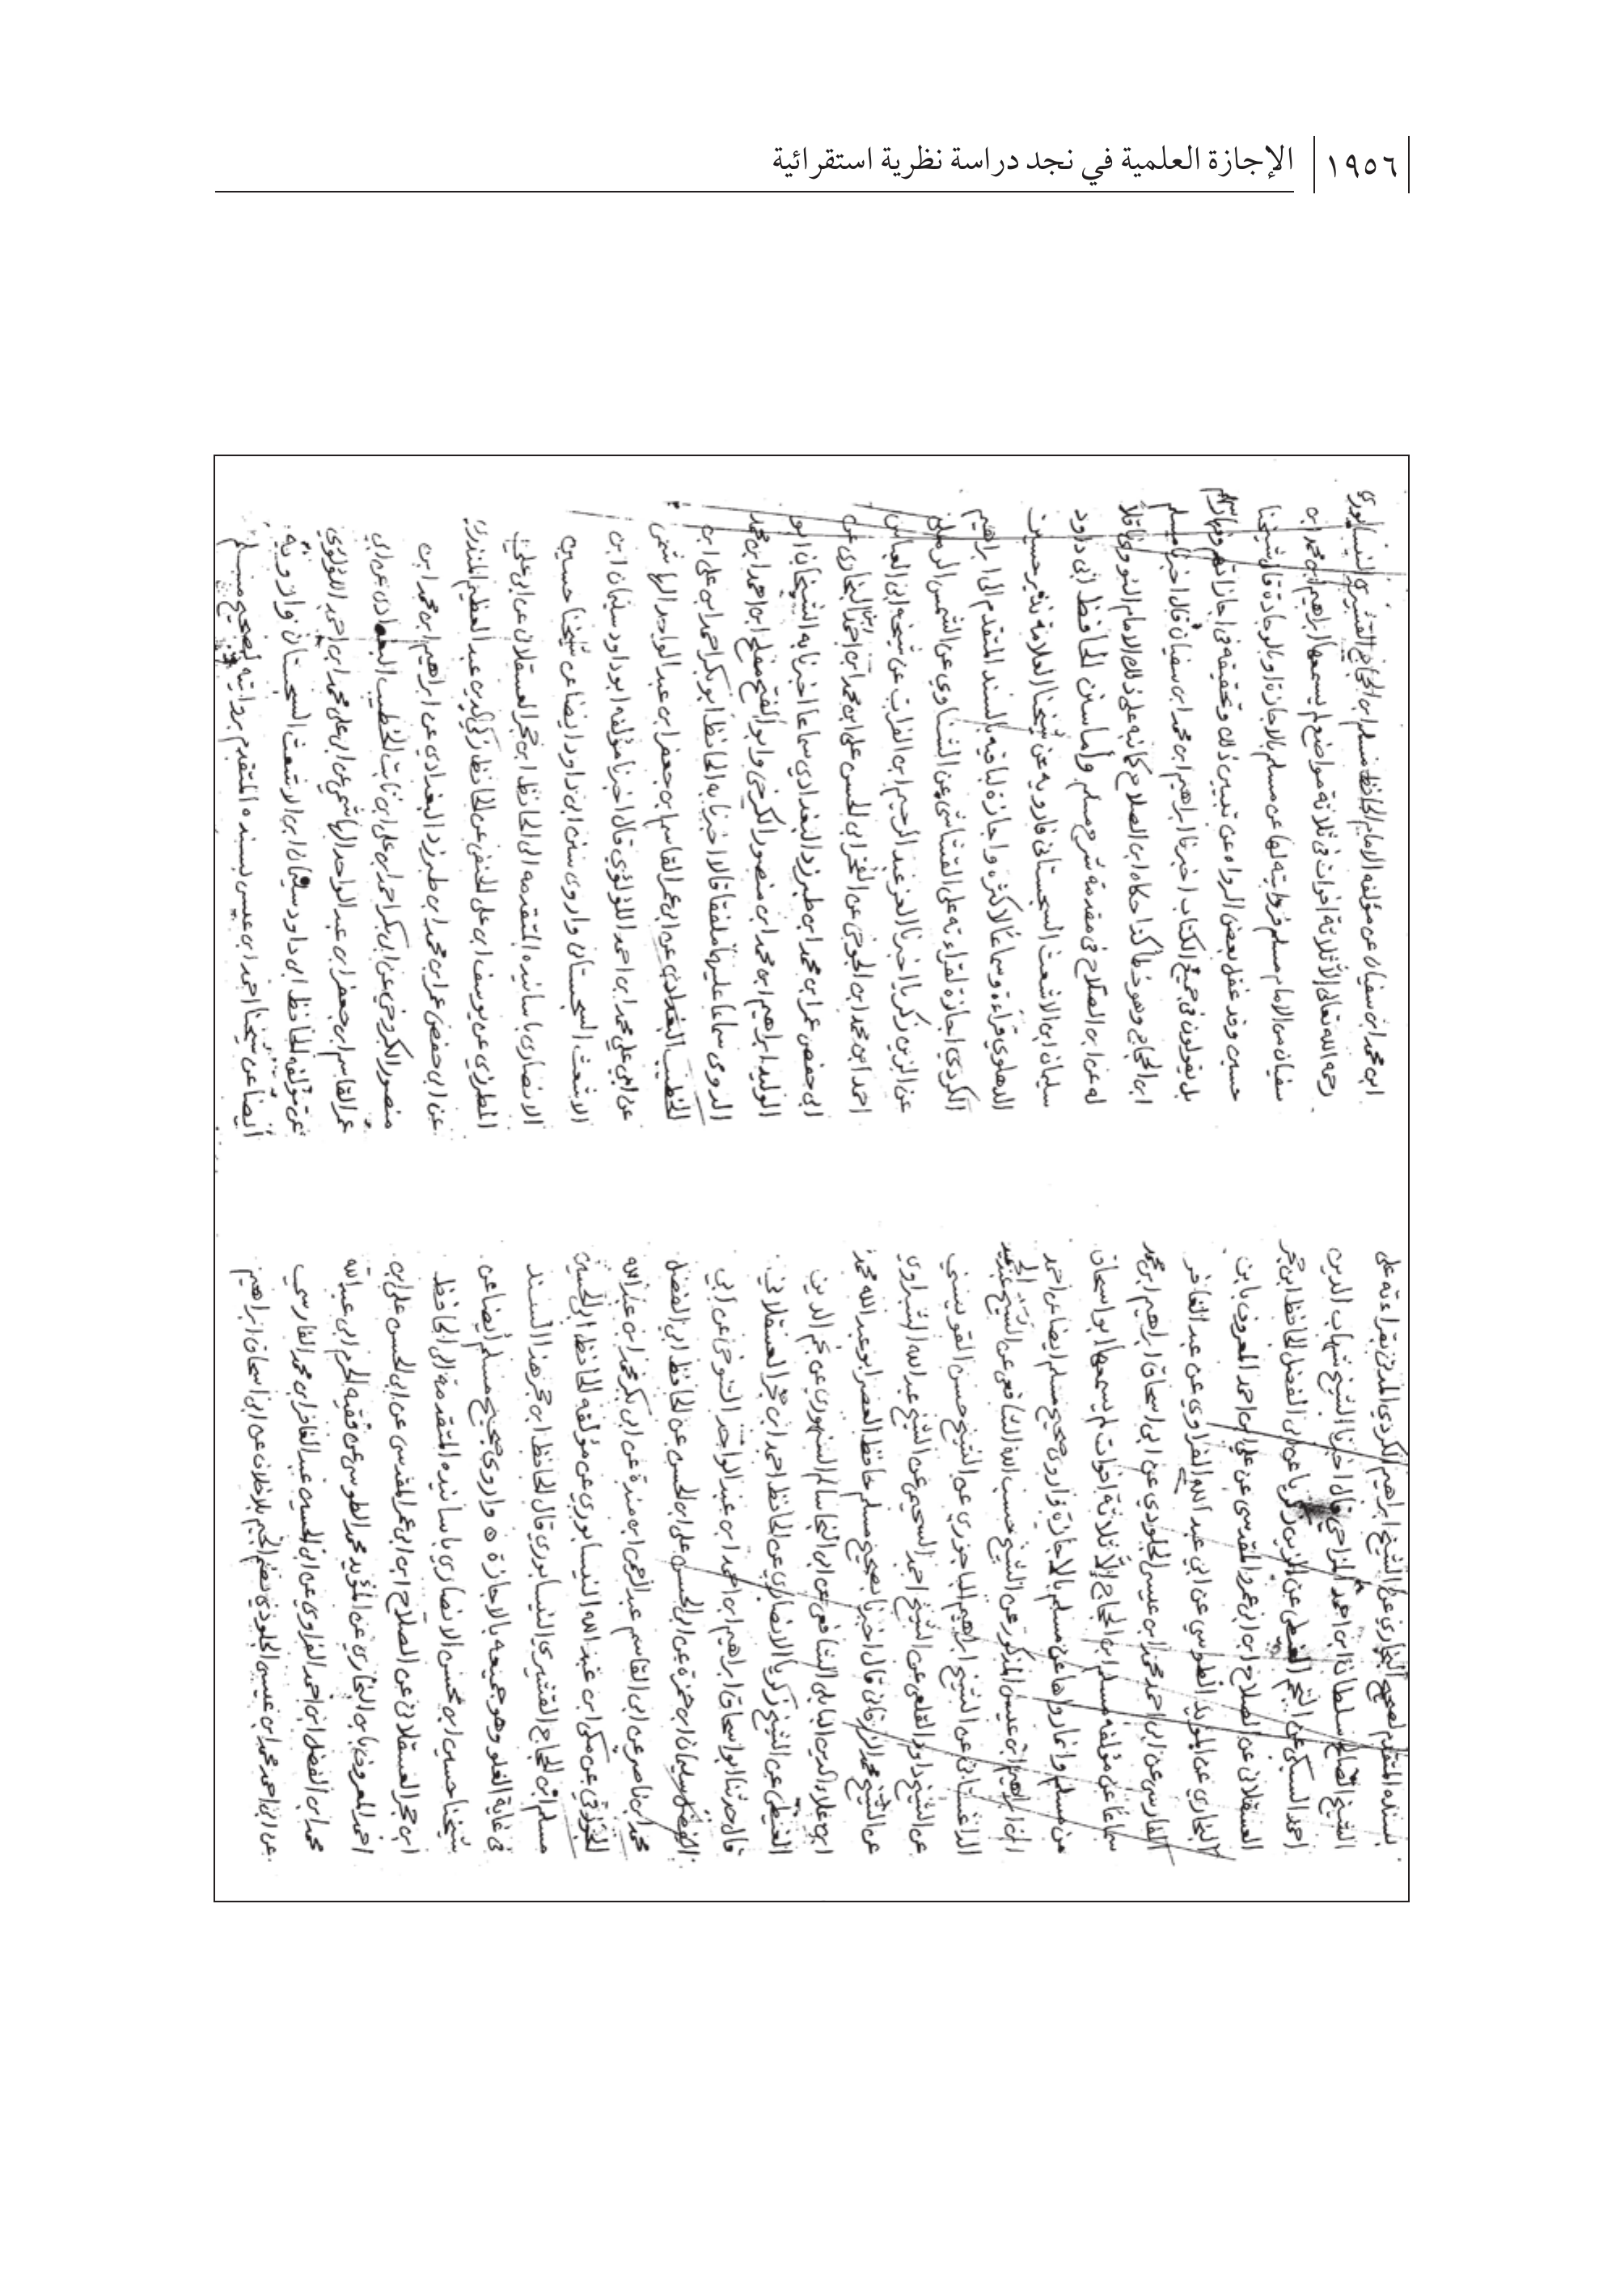 ١٩٥٦
الإجازة العلمية في نجد دراسة نظرية استقرائية
بسنده المتقدم لصحيح البخاري عن الشيخ ابراهيم الكردي المدني بقراءته على
الشيخ الصالح سلطان ابن احمد المزاحي قال اخبرنا الشيخ شهاب الدين
احمد السبكي عن النجم الغيطي عن الزين زكريا عن ابي الفضل الحافظ ابن حجر
العسقلاني عن الصلاح ابن ابي عمر المقدسي عن علي ابن احمد المعروف بابن
البخاري عن المؤيد الطوسي عن ابي عبد الله الفراوي عن عبد الغافر
الفارسي عن ابي احمد محمد ابن عيسى الجلودي عن ابي اسحاق ابراهيم ابن محمد
سماعا عن مؤلفه مسلم ابن الحجاج إلا ثلاثة افوات لم يسمعها ابو اسحاق
من مسلم وانما رواها عن مسلم بالاجازة واروي صحيح مسلم ايضا عن احمد
ابن ابراهيم ابن عيسى المذكور عن الشيخ حسب الله الشافعي عن الشيخ عبد الحميد
الداغستاني عن الشيخ ابراهيم الباجوري عن الشيخ حسن القويسني
عن الشيخ داود القلعي عن الشيخ احمد السحيمي عن الشيخ عبد الله الشبراوي
عن الشيخ محمد الزرقاني قال اخبرنا بصحيح مسلم حافظ العصر ابو عبد الله محمد
ابن علاء الدين البابلي الشافعي عن ابي النجا سالم السنهوري عن نجم الدين
الغيطي عن الشيخ زكريا الانصاري عن الحافظ احمد ابن حجر العسقلاني
قال حدثنا ابو اسحاق ابراهيم ابن احمد ابن عبد الواحد التنوخي عن ابي
الفضل سليمان ابن حمزة عن ابي الحسن علي ابن الحسين عن الحافظ ابي الفضل
محمد ابن ناصر عن ابي القاسم عبد الرحمن ابن مندة عن ابي بكر محمد ابن عبد الله
الجوزقي عن مكي ابن عبد الله النيسابوري عن مؤلفه الحافظ ابي الحسين
مسلم ابن الحجاج القشيري النيسابوري قال الحافظ ابن حجر هذا السند
في غاية العلو وهو جميعه بالاجازة ٥ واروي صحيح مسلم أيضا عن
شيخنا حسين ابن محسن الانصاري باسانيده المتقدمة الى الحافظ
ابن حجر العسقلاني عن الصلاح ابن ابي عمر المقدسي عن ابي الحسن علي ابن
احمد المعروف بابن البخاري عن المؤيد محمد الطوسي عن فقيه الحرم ابي عبد الله
محمد ابن الفضل ابن احمد الفراوي عن ابي الحسين عبد الغافر ابن محمد الفارسي
عن ابي احمد محمد ابن عيسى الجلودي بضم الجيم بلا خلاف عن ابي اسحاق ابراهيم
ابن محمد ابن سفيان عن مؤلفه الامام الحافظ مسلم ابن الحجاج القشيري النيسابوري
رحمه الله تعالى الا ثلاثة افوات في ثلاثة مواضع لم يسمعها ابراهيم ابن محمد ابن
سفيان من الامام مسلم فروايته لها عن مسلم بالاجازة او بالوجادة قال شيخنا
حسين وقد غفل بعض الرواه عن تبيين ذلك وتحقيقه في اجازاتهم وفهارسهم
بل يقولون في جميع الكتاب اخبرنا ابراهيم ابن محمد ابن سفيان قال اخبرنا مسلم
ابن الحجاج وهو خطأ كذا حكاه ابن الصلاح كما نبه على ذلك الامام النووي ناقلا
له عن ابن الصلاح في مقدمة شرح مسلم وأما سنن الحافظ ابي داود
سليمان ابن الاشعث السجستاني فارويه عن شيخنا العلامة نذير حسين
الدهلوي قراءة وسماعا لأكثره واجازة لباقيه بالسند المتقدم الى ابراهيم
الكردي اجازة لقراءته على القشاشي عن الشناوي عن الشمس الرملي
عن الزين زكريا اخبرنا العز عبد الرحيم ابن الفرات عن شيخه ابي العباس
احمد ابن محمد ابن الجوخي عن الفخر ابي الحسن علي ابن محمد ابن احمد ابن البخاري عن
ابي حفص عمر ابن محمد ابن طبرزد البغدادي سماعا اخبرنا به الشيخان ابو
الوليد ابراهيم ابن محمد ابن منصور الكرخي وابو الفتح مفلح ابن احمد ابن محمد
الدومي سماعا عليهما ملفقا قالا اخبرنا به الحافظ ابو بكر احمد ابن علي ابن
الخطيب البغدادي عن ابي عمر القاسم ابن جعفر ابن عبد الواحد الهاشمي
عن ابي علي محمد ابن احمد اللؤلؤي قال اخبرنا مؤلفه ابو داود سليمان ابن
الاشعث السجستاني واروي سنن ابي داود ايضا عن شيخنا حسين
الانصاري باسانيده المتقدمه الى الحافظ ابن حجر العسقلاني عن ابي علي
المطرزي عن يوسف ابن علي الحنفي عن الحافظ زكي الدين عبد العظيم المنذري
عن ابي حفص عمر ابن محمد ابن طبرزد البغدادي عن ابراهيم ابن محمد ابن
منصور الكروخي عن ابي بكر احمد ابن علي ابن ثابت الخطيب البغدادي عن ابي
عمر القاسم ابن جعفر ابن عبد الواحد الهاشمي عن ابي علي محمد ابن احمد اللؤلؤي
عن مؤلفه الحافظ ابي داود سليمان ابن الاشعث السجستاني وارويه
أيضا عن شيخنا احمد ابن عيسى بسنده المتقدم بروايته لصحيح مسلم